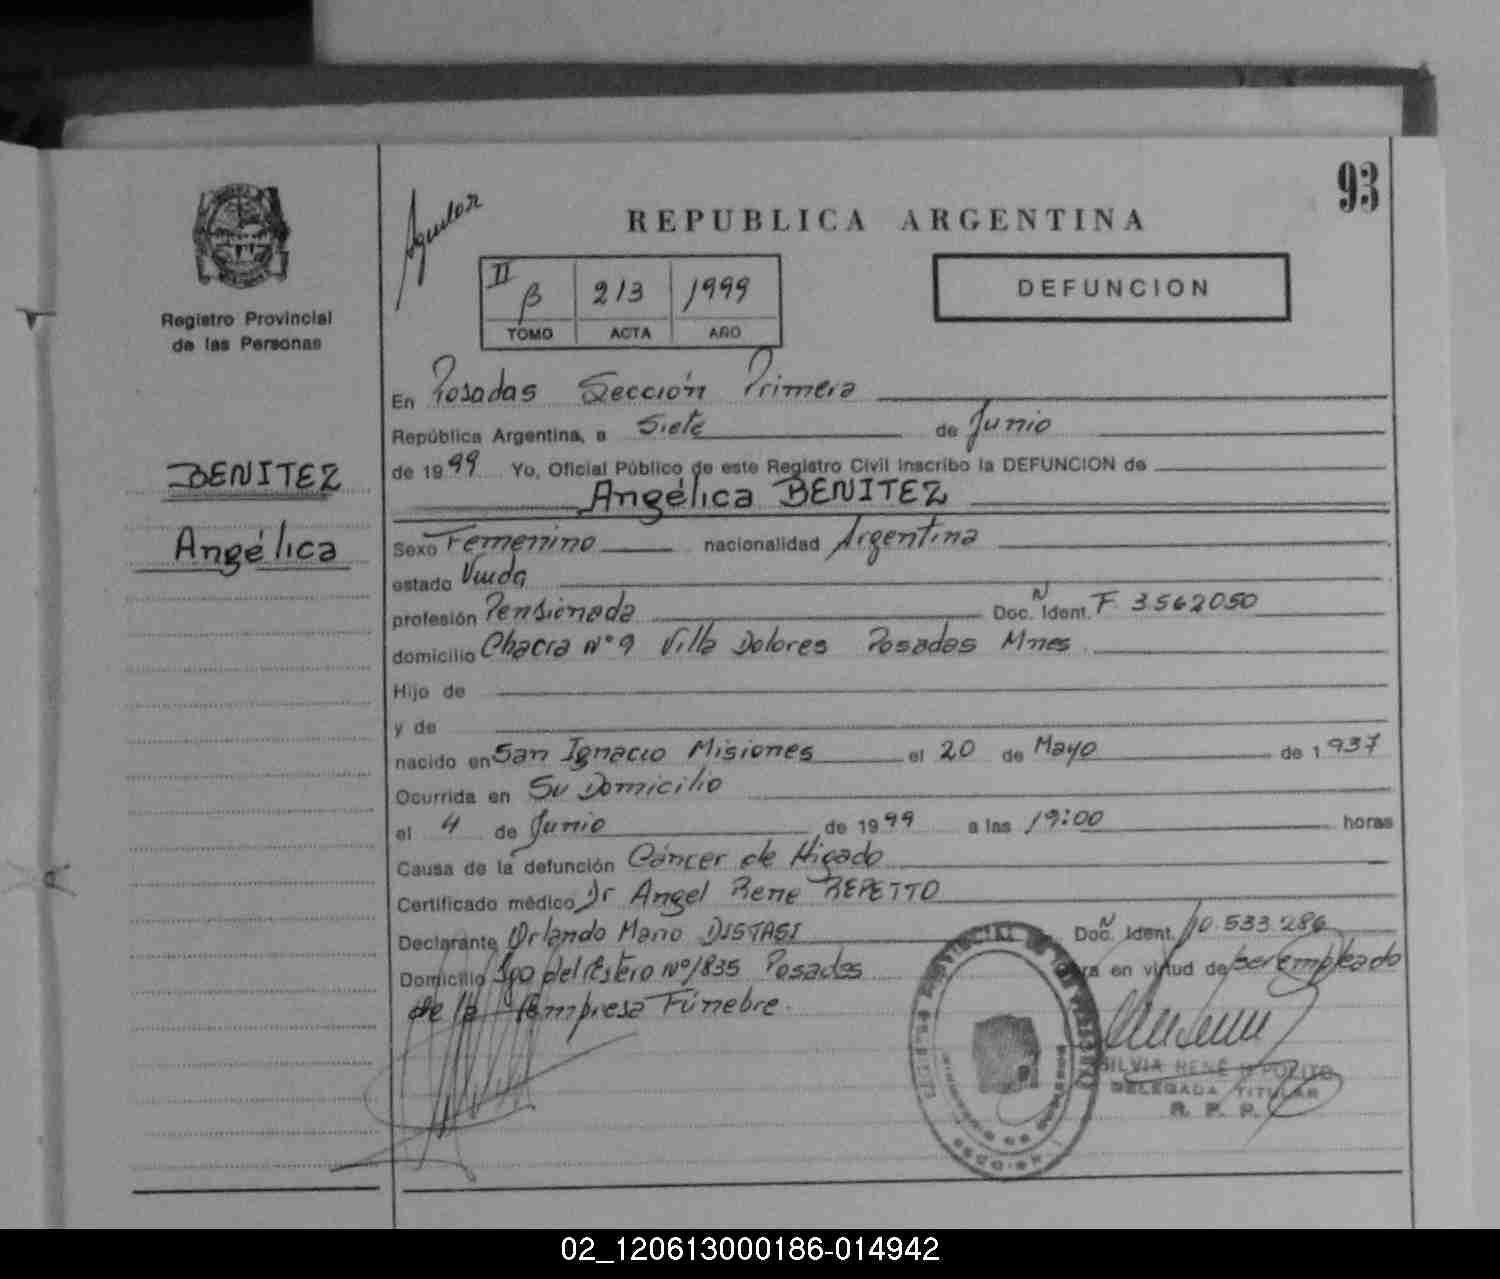 93
Registro Provincial
de las Personas
BENITEZ
Angélica
Aguilar
REPUBLICA ARGENTINA
II B 213 1999
TOMO ACTA AÑO
DEFUNCION
En Posadas Sección Primera
República Argentina, a Siete de Junio
de 1999 Yo, Oficial Público de este Registro Civil Inscribo la DEFUNCION de
Angélica BENITEZ
Sexo Femenino nacionalidad Argentina
estado Viuda
profesión Pensionada Doc. Ident. N F 3562050
domicilio Chacra Nº 9 Villa Dolores Posadas Mnes
Hijo de
y de
nacido en San Ignacio Misiones el 20 de Mayo de 1937
Ocurrida en Su Domicilio
el 4 de Junio de 1999 a las 19:00 horas
Causa de la defunción Cáncer de Higado
Certificado médico Dr Angel Rene REPETTO
Declarante Orlando Mario DISTASI Doc. Ident. N 10.533.286
Domicilio Sgo del Estero Nº 1835 Posadas en virtud de ser empleado
de la Empresa Fúnebre.
SILVIA RENÉ
DELEGADA TITULAR
R. P. P.
02_120613000186-014942